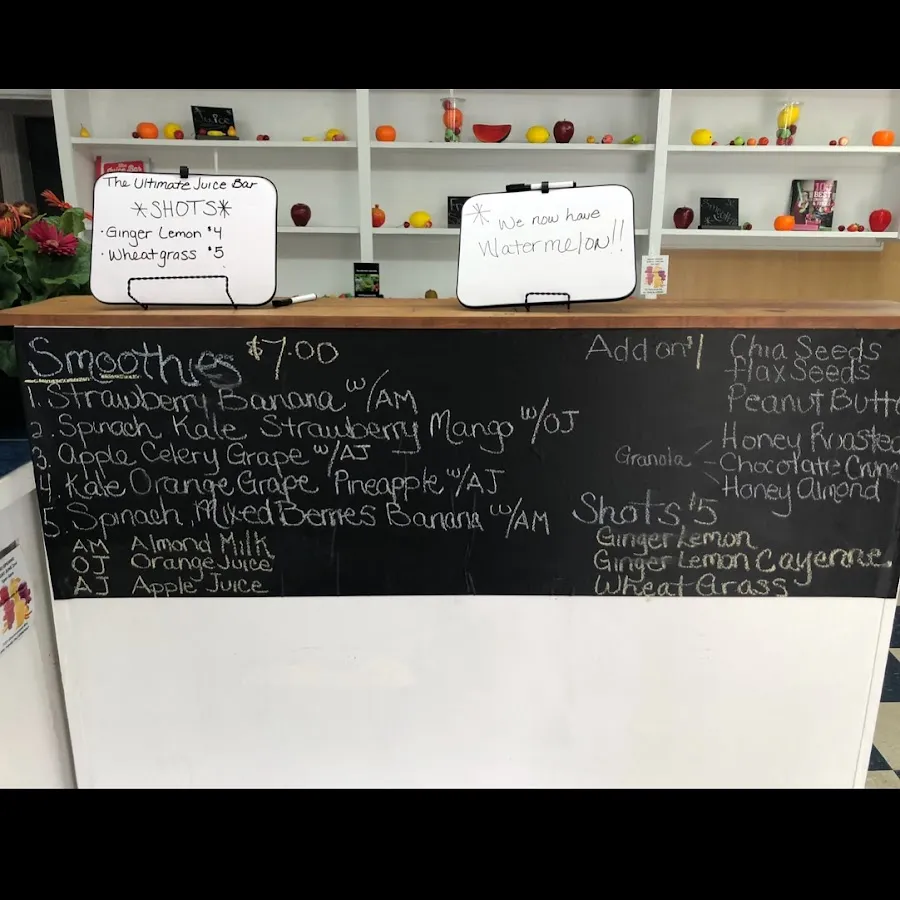 The Ultimate Juice Bar
*SHOTS*
· Ginger Lemon $4
· Wheatgrass $5
* We now have
Watermelon!!
Smoothies $7.00
1. Strawberry Banana w/AM
2. Spinach Kale Strawberry Mango w/OJ
3. Apple Celery Grape w/AJ
4. Kale Orange Grape Pineapple w/AJ
5. Spinach, Mixed Berries Banana w/AM
AM Almond Milk
OJ Orange Juice
AJ Apple Juice
Add on $1 Chia Seeds
flax Seeds
Peanut Butt
Granola Honey Roasted
Chocolate Crunc
Honey Almond
Shots $5
Ginger Lemon
Ginger Lemon Cayenne
Wheat Grass